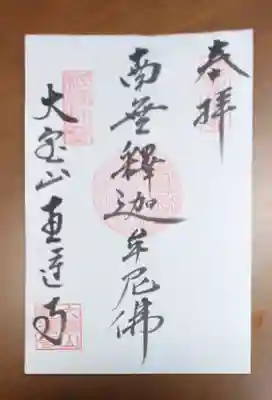 奉拝
南無釋迦牟尼佛
大宝山直道寺